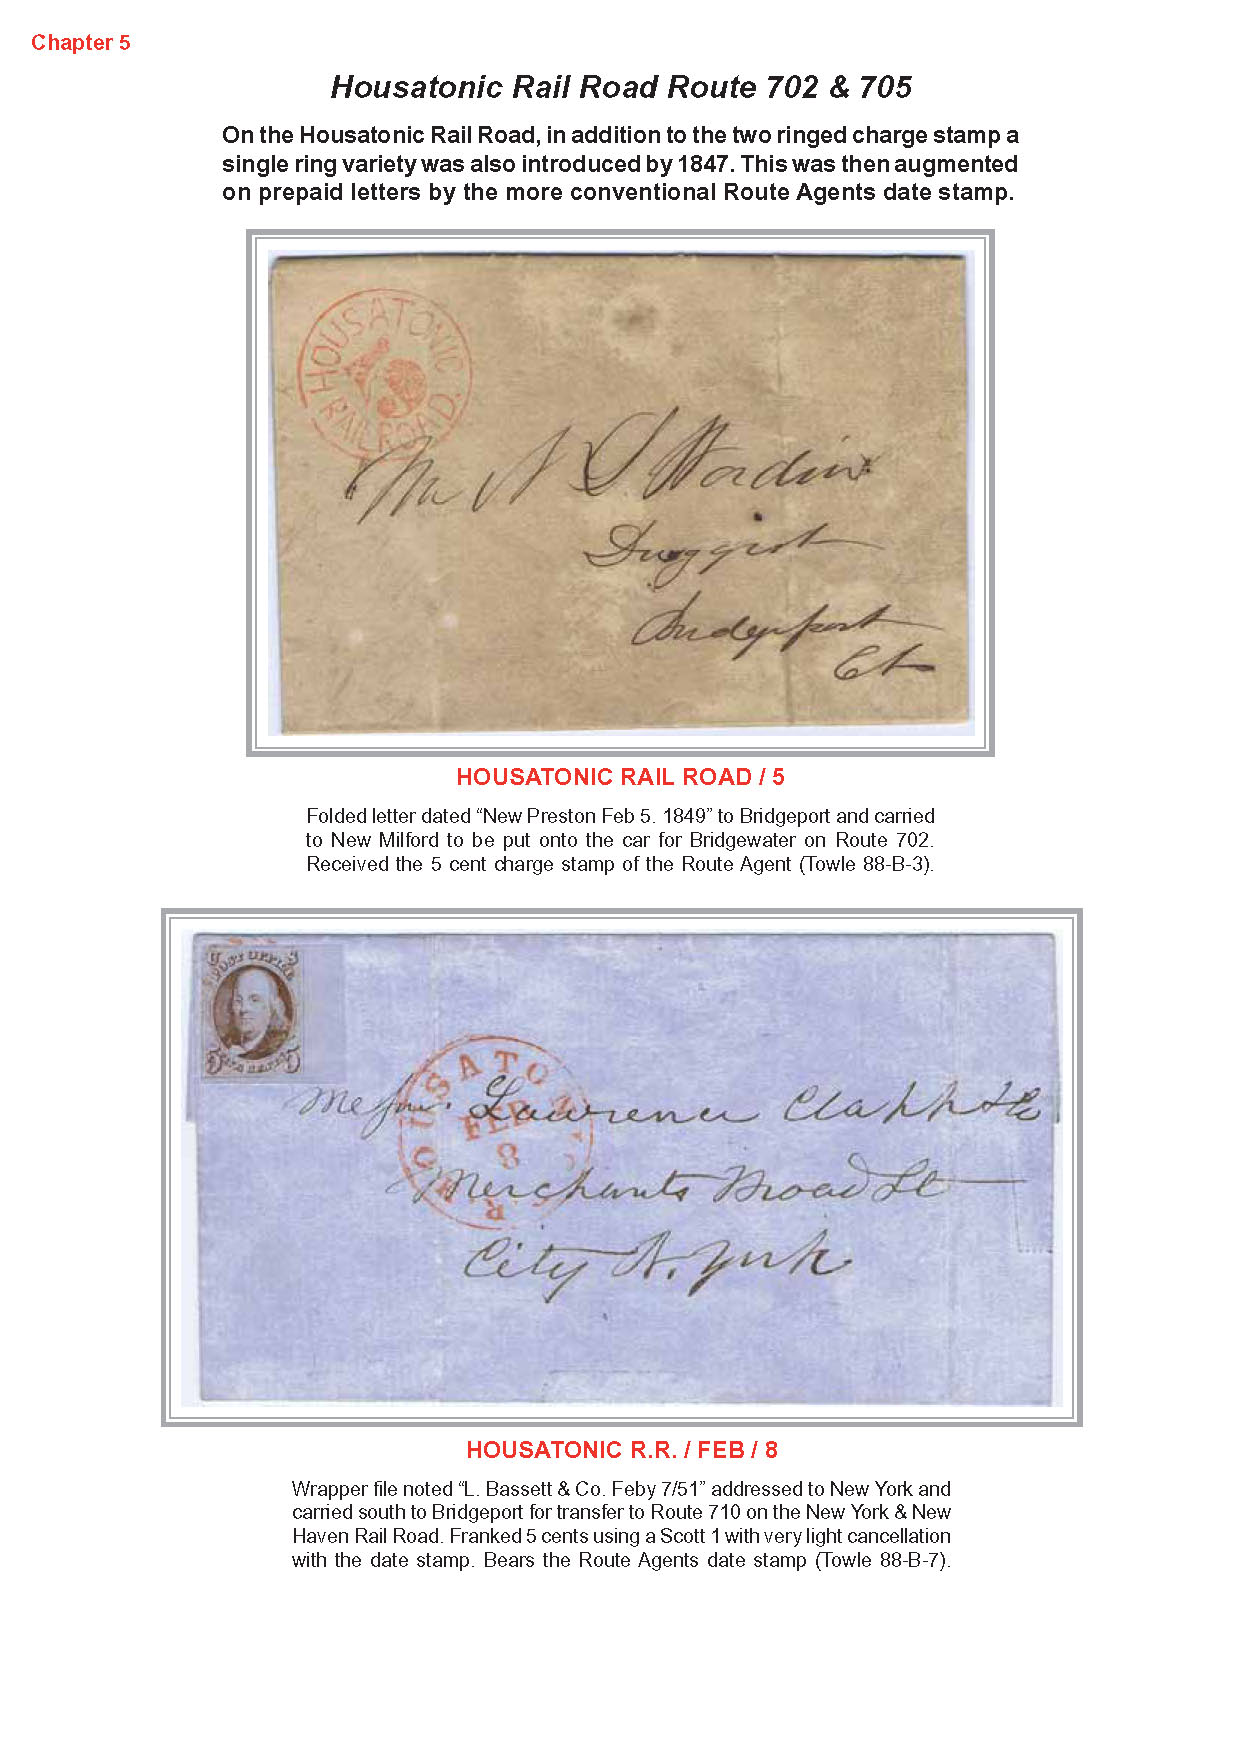 Chapter 5
Housatonic Rail Road Route 702 & 705
On the Housatonic Rail Road, in addition to the two ringed charge stamp a
single ring variety was also introduced by 1847. This was then augmented
on prepaid letters by the more conventional Route Agents date stamp.
HOUSATONIC
5
RAIL ROAD.
Mr N S Wordin
Druggist
Bridgeport
Ct
HOUSATONIC RAIL ROAD / 5
Folded letter dated “New Preston Feb 5. 1849” to Bridgeport and carried
to New Milford to be put onto the car for Bridgewater on Route 702.
Received the 5 cent charge stamp of the Route Agent (Towle 88-B-3).
U S
POST OFFICE
5 FIVE CENTS 5
HOUSATONIC
FEB
8
R.R.
Messrs. Lawrence Clapp & Co
Merchants Broad St
City N. York
HOUSATONIC R.R. / FEB / 8
Wrapper file noted “L. Bassett & Co. Feby 7/51” addressed to New York and
carried south to Bridgeport for transfer to Route 710 on the New York & New
Haven Rail Road. Franked 5 cents using a Scott 1 with very light cancellation
with the date stamp. Bears the Route Agents date stamp (Towle 88-B-7).